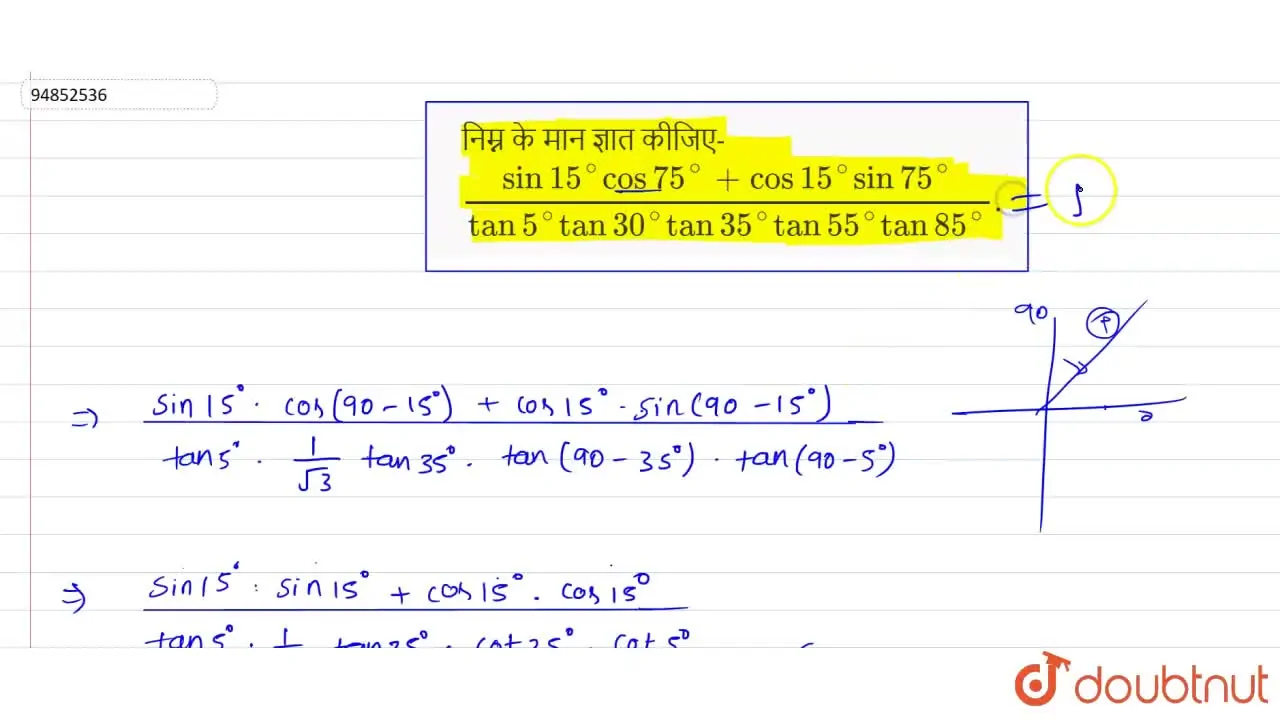 94852536
निम्न के मान ज्ञात कीजिए-
sin 15° cos 75° + cos 15° sin 75°
tan 5° tan 30° tan 35° tan 55° tan 85° . =
90
⇒ sin 15° . cos (90 - 15°) + cos 15° . sin (90 - 15°)
tan 5° . 1/√3 tan 35° . tan (90 - 35°) . tan (90 - 5°)
⇒ sin 15° . sin 15° + cos 15° . cos 15°
doubtnut